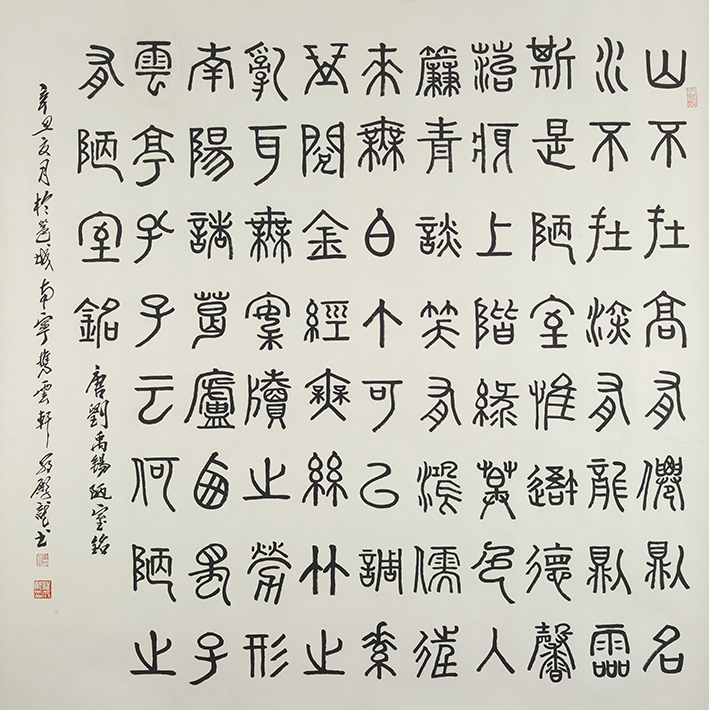 山不在高有僊則名
水不在深有龍則靈
斯是陋室惟吾德馨
苔痕上階綠草色入
簾青談笑有鴻儒往
來無白丁可以調素
琴閱金經無絲竹之
亂耳無案牘之勞形
南陽諸葛廬西蜀子
雲亭孔子云何陋之
有陋室銘
唐劉禹錫陋室銘
辛丑夏月於邕城南寧雲軒龍書